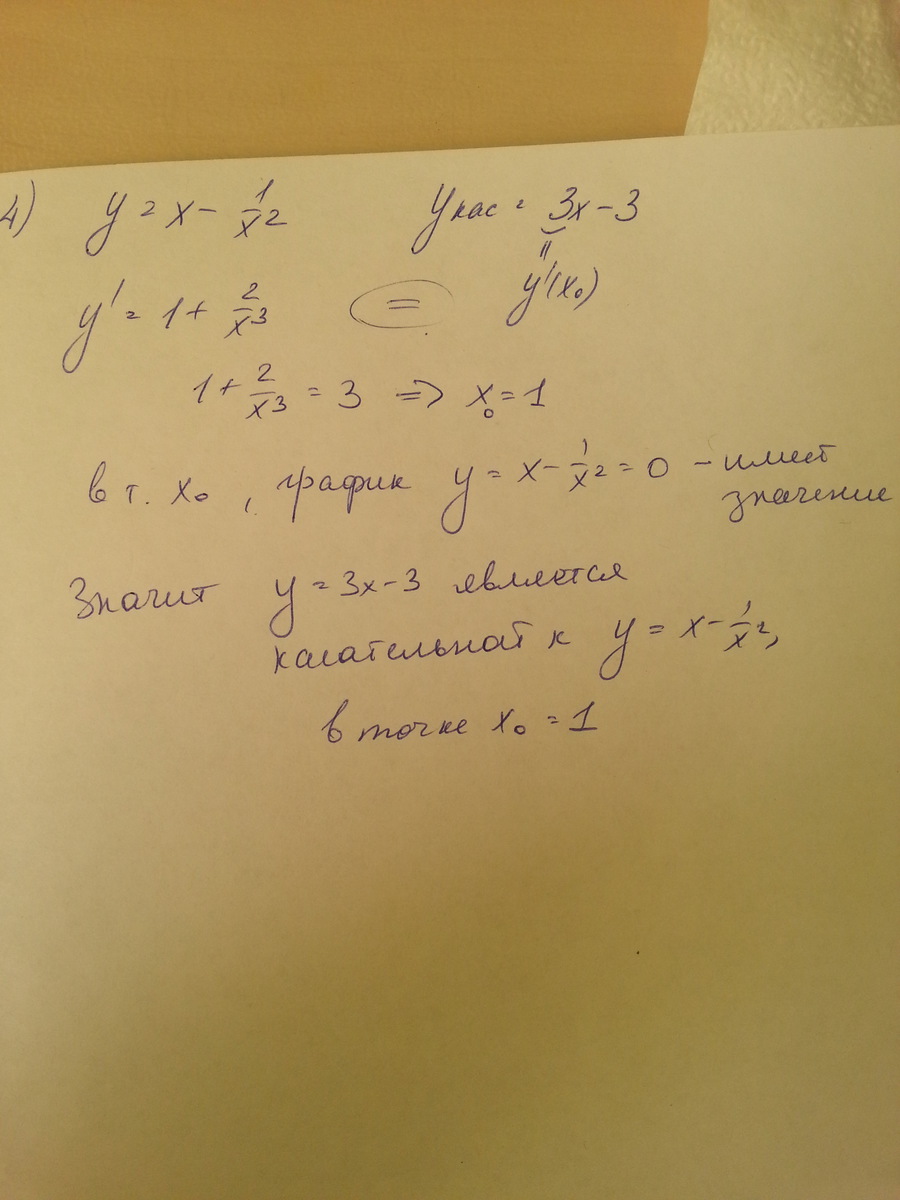 4) y = x - 1/x² yкас = 3x - 3
y' = 1 + 2/x³ = y'(x₀)
1 + 2/x³ = 3 => x₀ = 1
в т. x₀, график y = x - 1/x² = 0 - имеет
значение
Значит y = 3x - 3 является
касательной к y = x - 1/x²,
в точке x₀ = 1